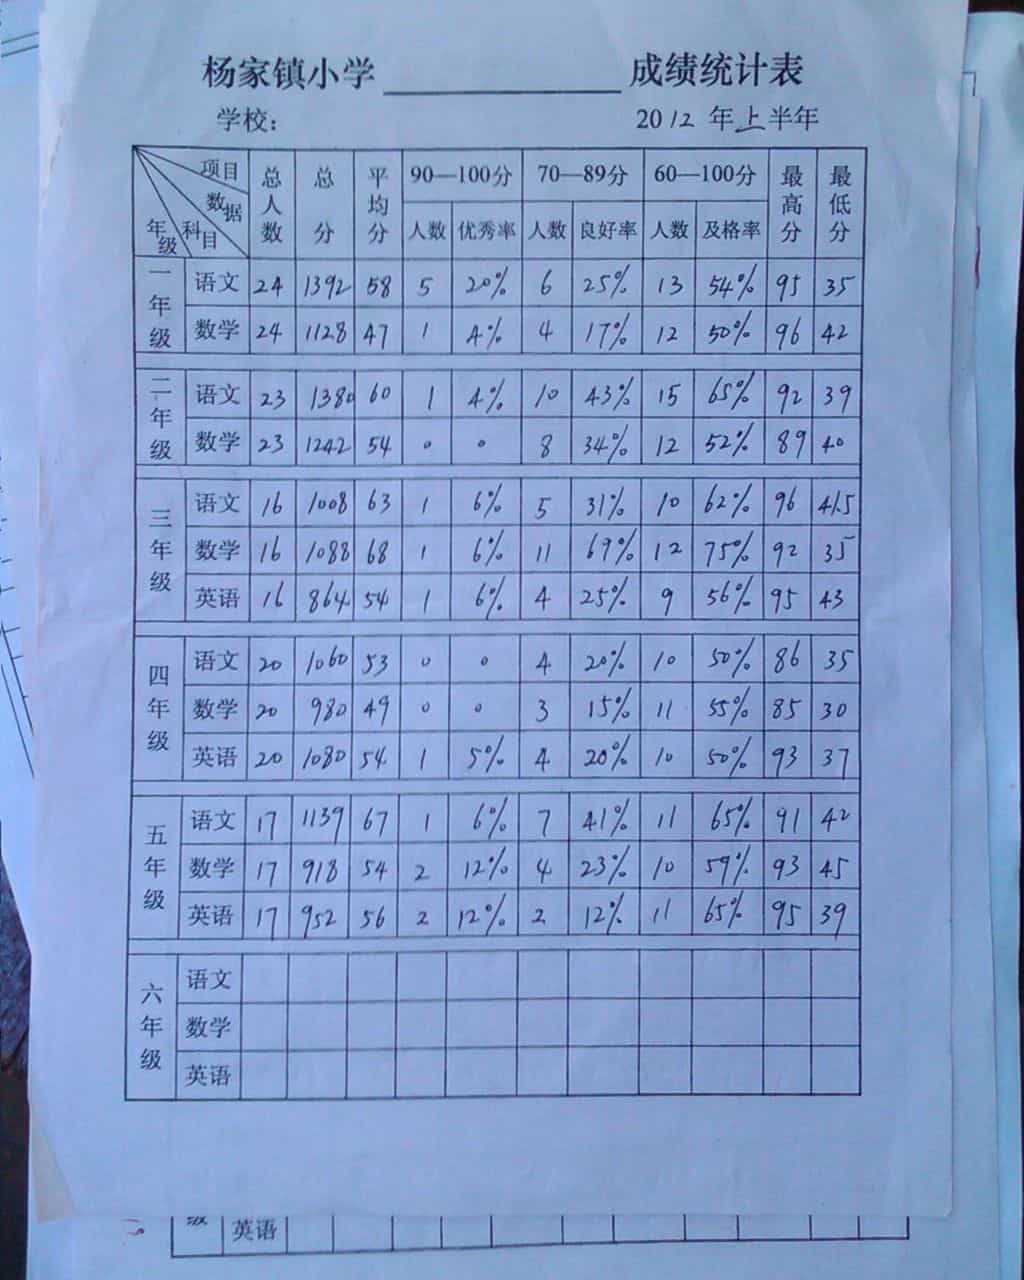 杨家镇小学 成绩统计表
学校: 2012年上半年
项目 数据 科目 年级 总人数 总分 平均分 90—100分 70—89分 60—100分 最高分 最低分
人数 优秀率 人数 良好率 人数 及格率
一年级 语文 24 1392 58 5 20% 6 25% 13 54% 95 35
数学 24 1128 47 1 4% 4 17% 12 50% 96 42
二年级 语文 23 1380 60 1 4% 10 43% 15 65% 92 39
数学 23 1242 54 0 0 8 34% 12 52% 89 40
三年级 语文 16 1008 63 1 6% 5 31% 10 62% 96 41.5
数学 16 1088 68 1 6% 11 69% 12 75% 92 35
英语 16 864 54 1 6% 4 25% 9 56% 95 43
四年级 语文 20 1060 53 0 0 4 20% 10 50% 86 35
数学 20 980 49 0 0 3 15% 11 55% 85 30
英语 20 1080 54 1 5% 4 20% 10 50% 93 37
五年级 语文 17 1139 67 1 6% 7 41% 11 65% 91 42
数学 17 918 54 2 12% 4 23% 10 59% 93 45
英语 17 952 56 2 12% 2 12% 11 65% 95 39
六年级 语文
数学
英语
级 英语